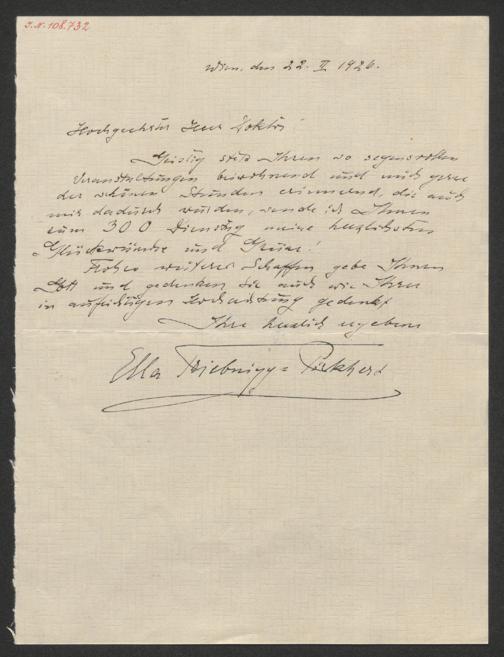 I.N. 108.732
Wien, den 22. II 1926.
Hochgeehrter Herr Doktor!
Geistig stets Ihren so segensvollen
Veranstaltungen beiwohnend und mich gerne
der schönen Stunden erinnernd, die auch
mir dadurch wurden, sende ich Ihnen
zum 300 Dienstag meine herzlichsten
Glückwünsche und Grüße!
Frohes weiteres Schaffen gebe Ihnen
Gott und gedenken Sie auch wie Ihrer
in aufrichtigen Hochachtung gedenkt
Ihre herzlich ergebene
Ella Triebnigg-Pirkhert